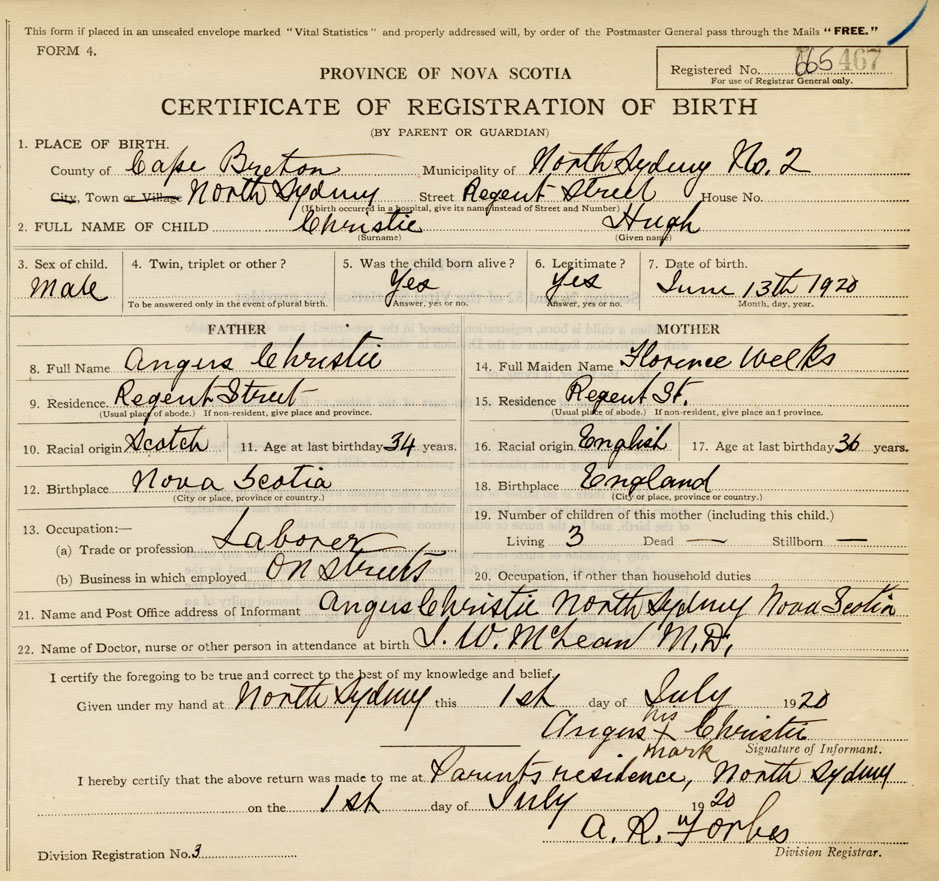 This form if placed in an unsealed envelope marked "Vital Statistics" and properly addressed will, by order of the Postmaster General pass through the Mails "FREE."
FORM 4.
Registered No. 665 467
For use of Registrar General only.
PROVINCE OF NOVA SCOTIA
CERTIFICATE OF REGISTRATION OF BIRTH
(BY PARENT OR GUARDIAN)
1. PLACE OF BIRTH.
County of Cape Breton Municipality of North Sydney No. 2
City, Town or Village North Sydney Street Regent Street House No.
(If birth occurred in a hospital, give its name instead of Street and Number)
2. FULL NAME OF CHILD Christie Hugh
(Surname) (Given name)
3. Sex of child. 4. Twin, triplet or other? 5. Was the child born alive? 6. Legitimate? 7. Date of birth.
Male Yes Yes June 13th 1920
To be answered only in the event of plural birth. Answer, yes or no. Answer, yes or no. Month, day, year.
FATHER MOTHER
8. Full Name Angus Christie 14. Full Maiden Name Florence Welks
9. Residence. Regent Street 15. Residence Regent St.
(Usual place of abode.) If non-resident, give place and province. (Usual place of abode.) If non-resident, give place and province.
10. Racial origin Scotch 11. Age at last birthday 34 years. 16. Racial origin English 17. Age at last birthday 36 years.
12. Birthplace Nova Scotia 18. Birthplace England
(City or place, province or country.) (City or place, province or country.)
13. Occupation:— 19. Number of children of this mother (including this child.)
(a) Trade or profession Laborer Living 3 Dead — Stillborn —
(b) Business in which employed On Streets 20. Occupation, if other than household duties
21. Name and Post Office address of Informant Angus Christie North Sydney Nova Scotia
22. Name of Doctor, nurse or other person in attendance at birth J. W. McLean M.D.
I certify the foregoing to be true and correct to the best of my knowledge and belief.
Given under my hand at North Sydney this 1st day of July 1920
his
Angus X Christie
mark Signature of Informant.
I hereby certify that the above return was made to me at Parents residence, North Sydney
on the 1st day of July 1920
A. R. Forbes
Division Registration No. 3 Division Registrar.